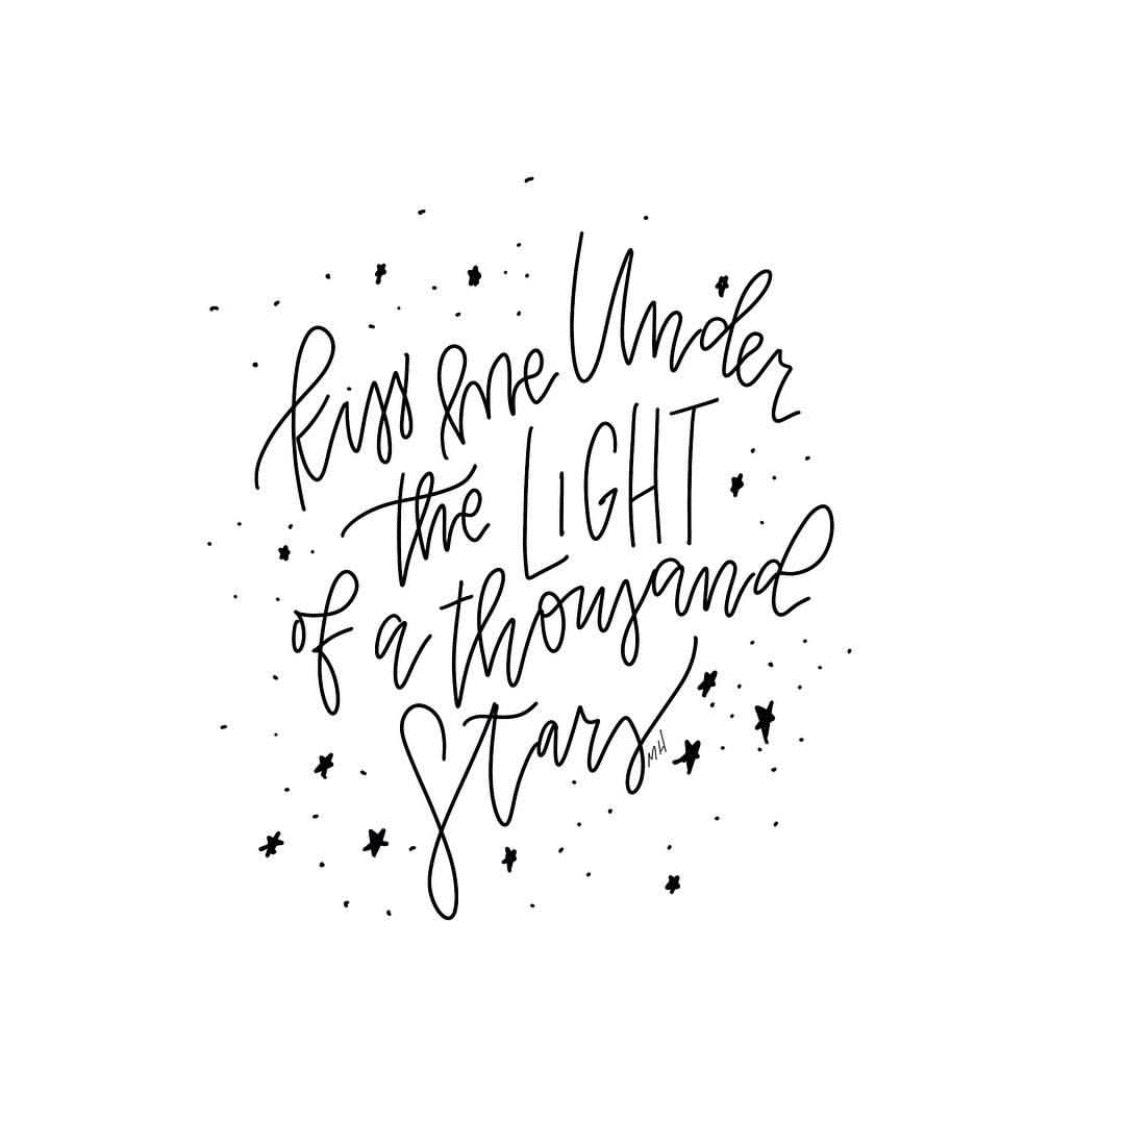 kiss me Under
the LiGHT
of a thousand
Stars
MH